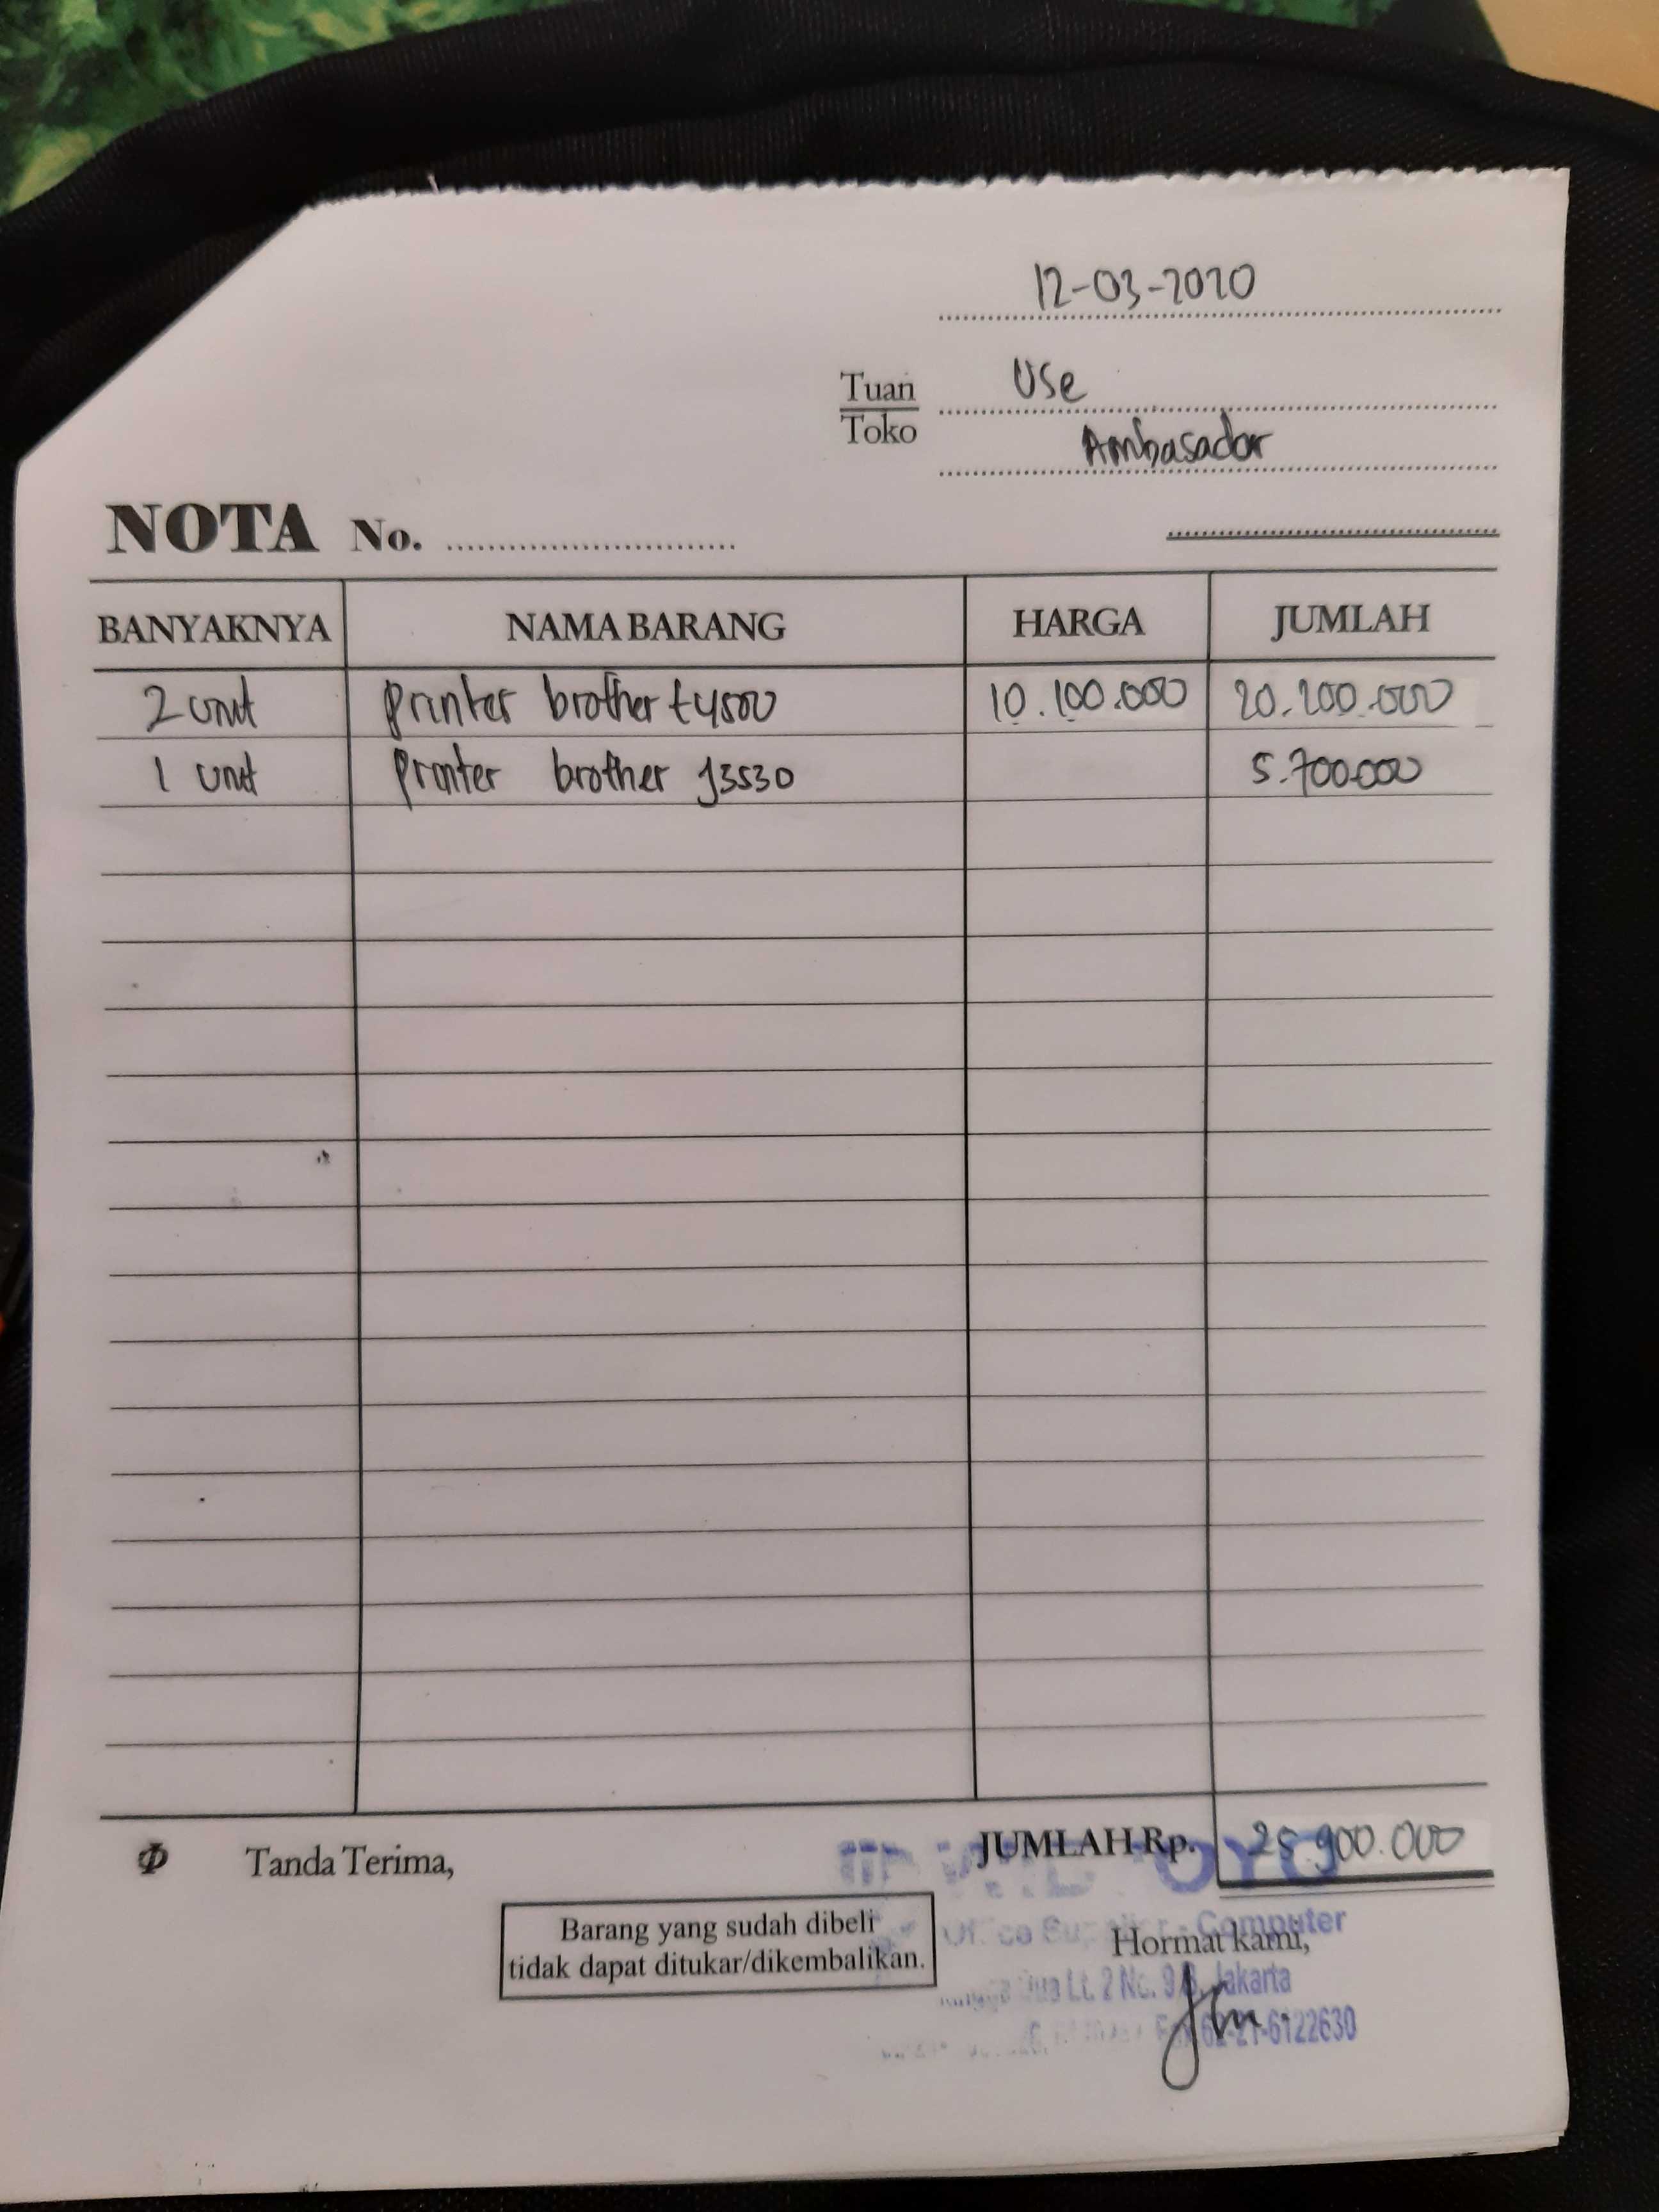 12-03-2020
Tuan Use
Toko Ambasador
NOTA No.
BANYAKNYA NAMA BARANG HARGA JUMLAH
2 unit printer brother t4500 10.100.000 20.200.000
1 unit printer brother J3530 5.700.000
JUMLAH Rp. 25.900.000
Tanda Terima,
Barang yang sudah dibeli
tidak dapat ditukar/dikembalikan.
Hormat kami,
Computer
Dua Lt. 2 No. Jakarta
62-21-6122630